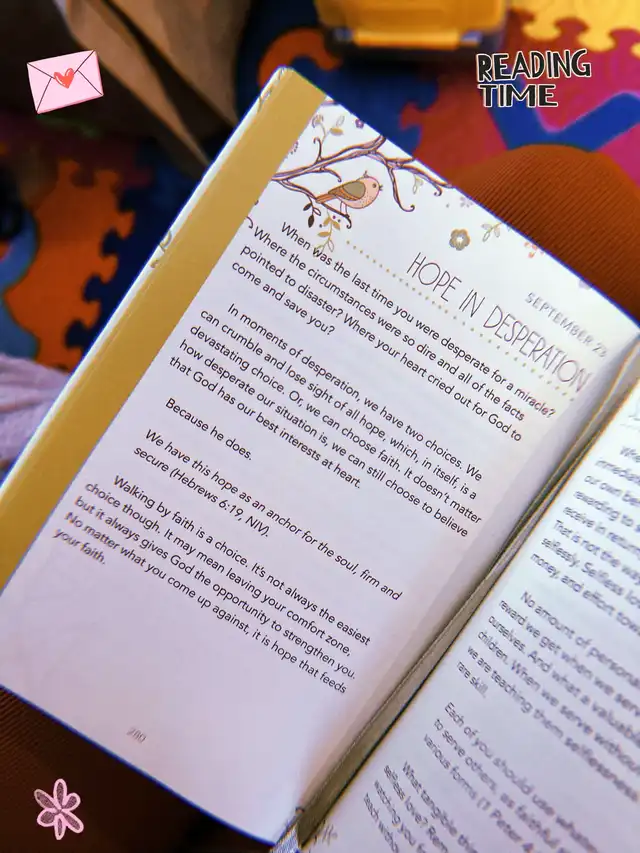 READING
TIME
SEPTEMBER 23
HOPE IN DESPERATION
When was the last time you were desperate for a miracle?
Where the circumstances were so dire and all of the facts
pointed to disaster? Where your heart cried out for God to
come and save you?
In moments of desperation, we have two choices. We
can crumble and lose sight of all hope, which, in itself, is a
devastating choice. Or, we can choose faith. It doesn't matter
how desperate our situation is, we can still choose to believe
that God has our best interests at heart.
Because he does.
We have this hope as an anchor for the soul, firm and
secure (Hebrews 6:19, NIV).
Walking by faith is a choice. It's not always the easiest
choice though. It may mean leaving your comfort zone,
but it always gives God the opportunity to strengthen you.
No matter what you come up against, it is hope that feeds
your faith.
280
our own
rewarding to
receive it
That is not the
selflessly. Selfless
money, and effort
No amount of
reward we get when we
ourselves. And what a
children. When we serve
we are teaching them
rare skill.
Each of you should use
to serve others, as faithful
various forms (1 Peter 4
What tangible
selfless love?
watching you
teach